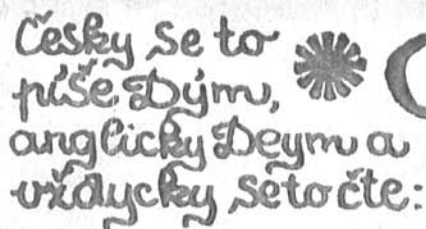 Česky se to
píše Dým,
anglicky Deym a
vždycky se to čte: